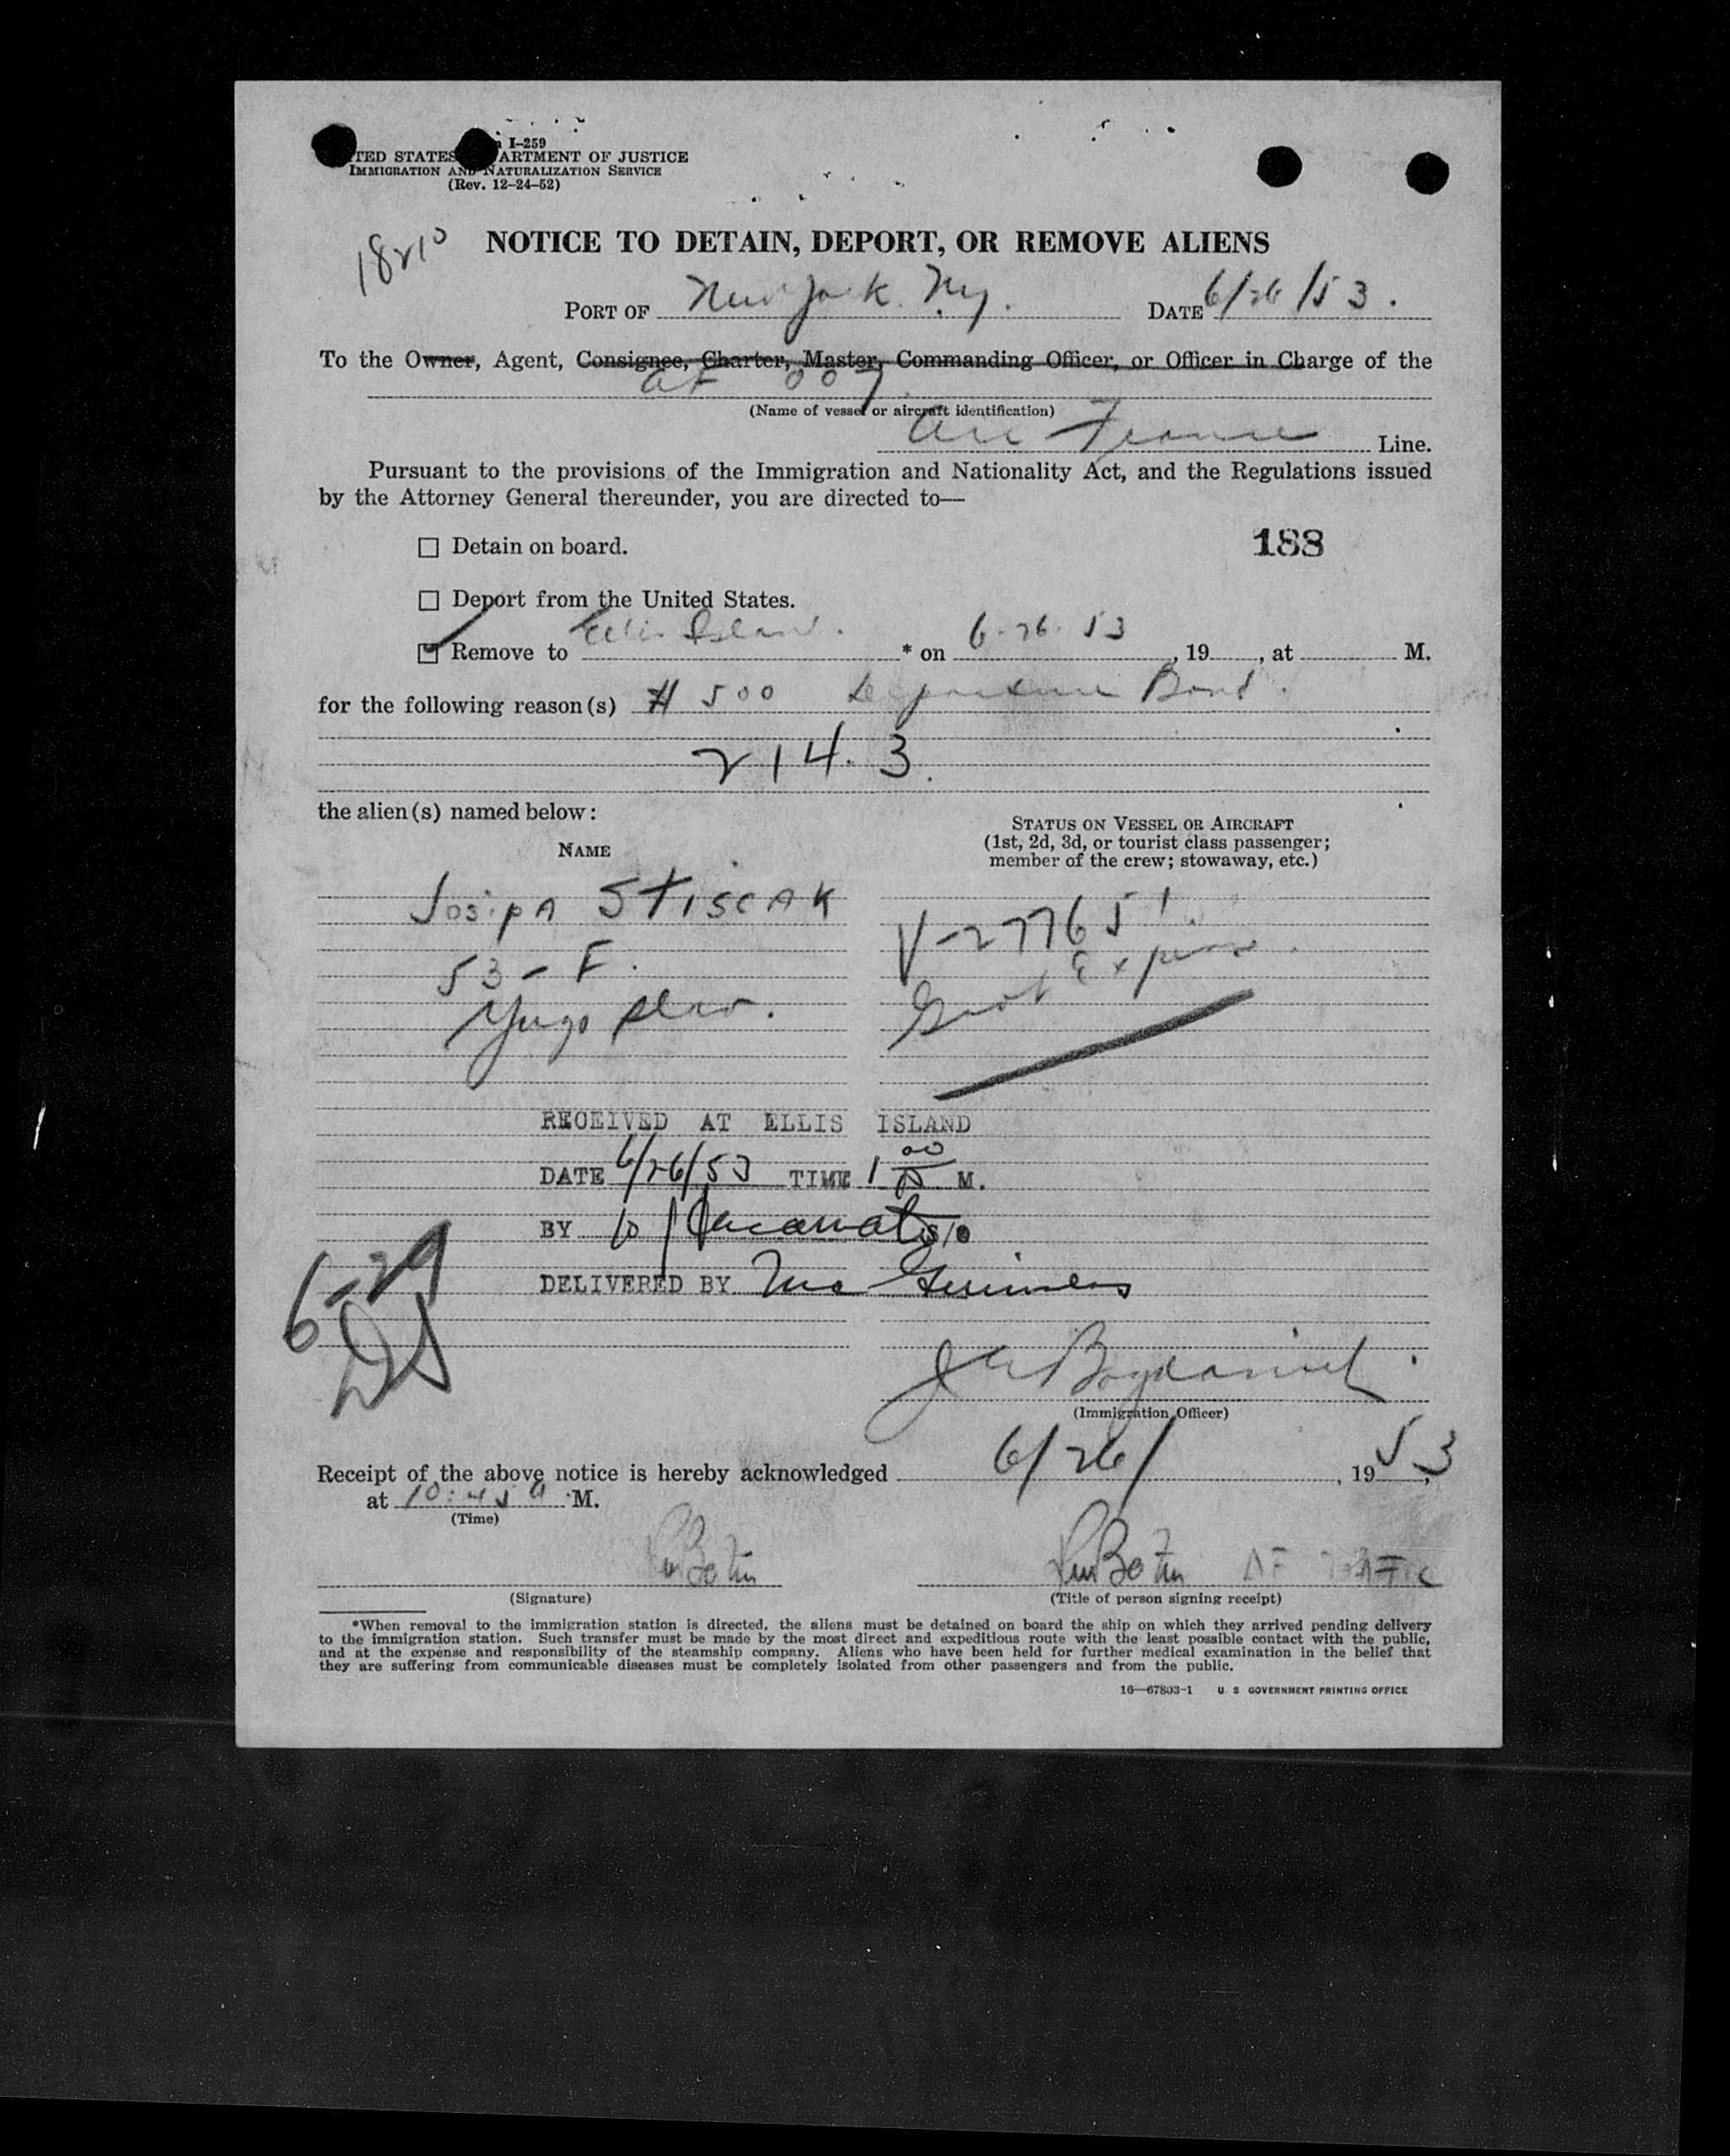 I-259
TED STATES ARTMENT OF JUSTICE
IMMIGRATION AND NATURALIZATION SERVICE
(Rev. 12-24-52)
18210
NOTICE TO DETAIN, DEPORT, OR REMOVE ALIENS
PORT OF New York. Ny. DATE 6/26/53.
To the Owner, Agent, Consignee, Charter, Master, Commanding Officer, or Officer in Charge of the
AF 007
(Name of vessel or aircraft identification)
Air France Line.
Pursuant to the provisions of the Immigration and Nationality Act, and the Regulations issued
by the Attorney General thereunder, you are directed to—
☐ Detain on board. 188
☐ Deport from the United States.
☑ Remove to Ellis Island. * on 6-26-53, 19, at M.
for the following reason(s) # 500 Departure Bond.
214.3.
the alien(s) named below:
STATUS ON VESSEL OR AIRCRAFT
(1st, 2d, 3d, or tourist class passenger;
member of the crew; stowaway, etc.)
NAME
Josipa STISCAK
V-277651
53-F.
Govt Expense.
Yugo slav.
RECEIVED AT ELLIS ISLAND
DATE 6/26/53 TIME 1 00 P M.
BY S/O
6-29
DELIVERED BY
(Immigration Officer)
Receipt of the above notice is hereby acknowledged 6/26/, 1953,
at 10:45 a M.
(Time)
AF
(Signature) (Title of person signing receipt)
*When removal to the immigration station is directed, the aliens must be detained on board the ship on which they arrived pending delivery
to the immigration station. Such transfer must be made by the most direct and expeditious route with the least possible contact with the public,
and at the expense and responsibility of the steamship company. Aliens who have been held for further medical examination in the belief that
they are suffering from communicable diseases must be completely isolated from other passengers and from the public.
16—67803-1 U. S GOVERNMENT PRINTING OFFICE